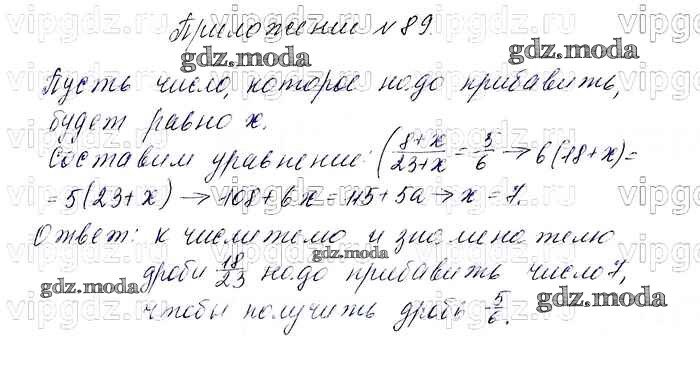 Приложение №89.
Пусть число, которое надо прибавить,
будет равно x.
Составим уравнение: (8+x/23+x = 5/6 → 6(18+x)=
=5(23+x) → 108+6x=115+5a → x=7.
Ответ: к числителю и знаменателю
дроби 18/23 надо прибавить число 7,
чтобы получить дробь 5/6.
vipgdz.ru
gdz.moda